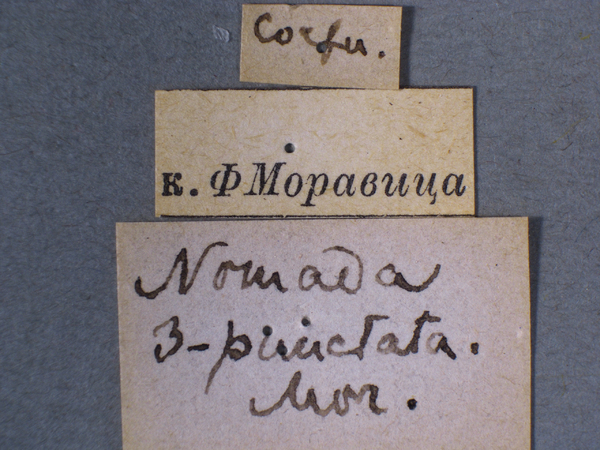 Corfu.
к. Ф Моравица
Nomada
3-punctata.
Mor.